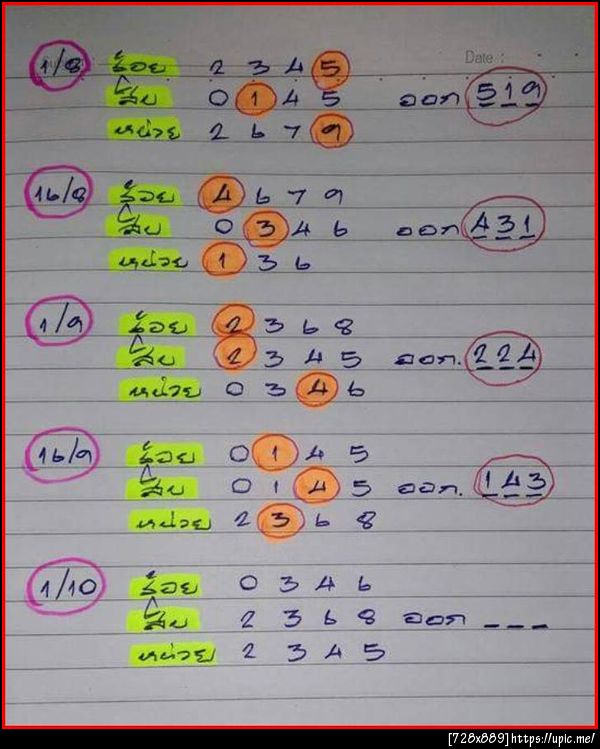 Date :
1/8 ร้อย 2 3 4 5
สิบ 0 1 4 5 ออก 519
หน่วย 2 6 7 9
16/8 ร้อย 4 6 7 9
สิบ 0 3 4 6 ออก 431
หน่วย 1 3 6
1/9 ร้อย 2 3 6 8
สิบ 2 3 4 5 ออก. 224
หน่วย 0 3 4 6
16/9 ร้อย 0 1 4 5
สิบ 0 1 4 5 ออก. 143
หน่วย 2 3 6 8
1/10 ร้อย 0 3 4 6
สิบ 2 3 6 8 ออก _ _ _
หน่วย 2 3 4 5
[728x889]https://upic.me/